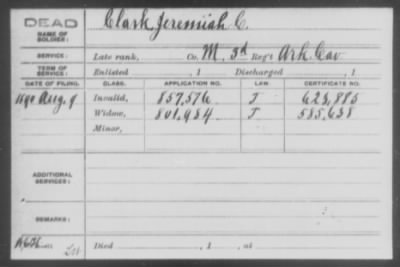 DEAD
NAME OF SOLDIER: Clark Jeremiah C.
SERVICE: Late rank, Co. M, 3d Reg't Ark Cav
TERM OF SERVICE: Enlisted , 1 Discharged , 1
DATE OF FILING. CLASS. APPLICATION NO. LAW. CERTIFICATE NO.
1890 Aug. 9 Invalid, 857,576 J 623,885
Widow, 801,984 J 585,638
Minor,
ADDITIONAL SERVICES:
REMARKS:
Died , 1 , at